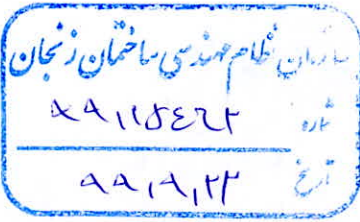 سازمان نظام مهندسی ساختمان زنجان
شماره
تاریخ ۹۹,۹,۲۳